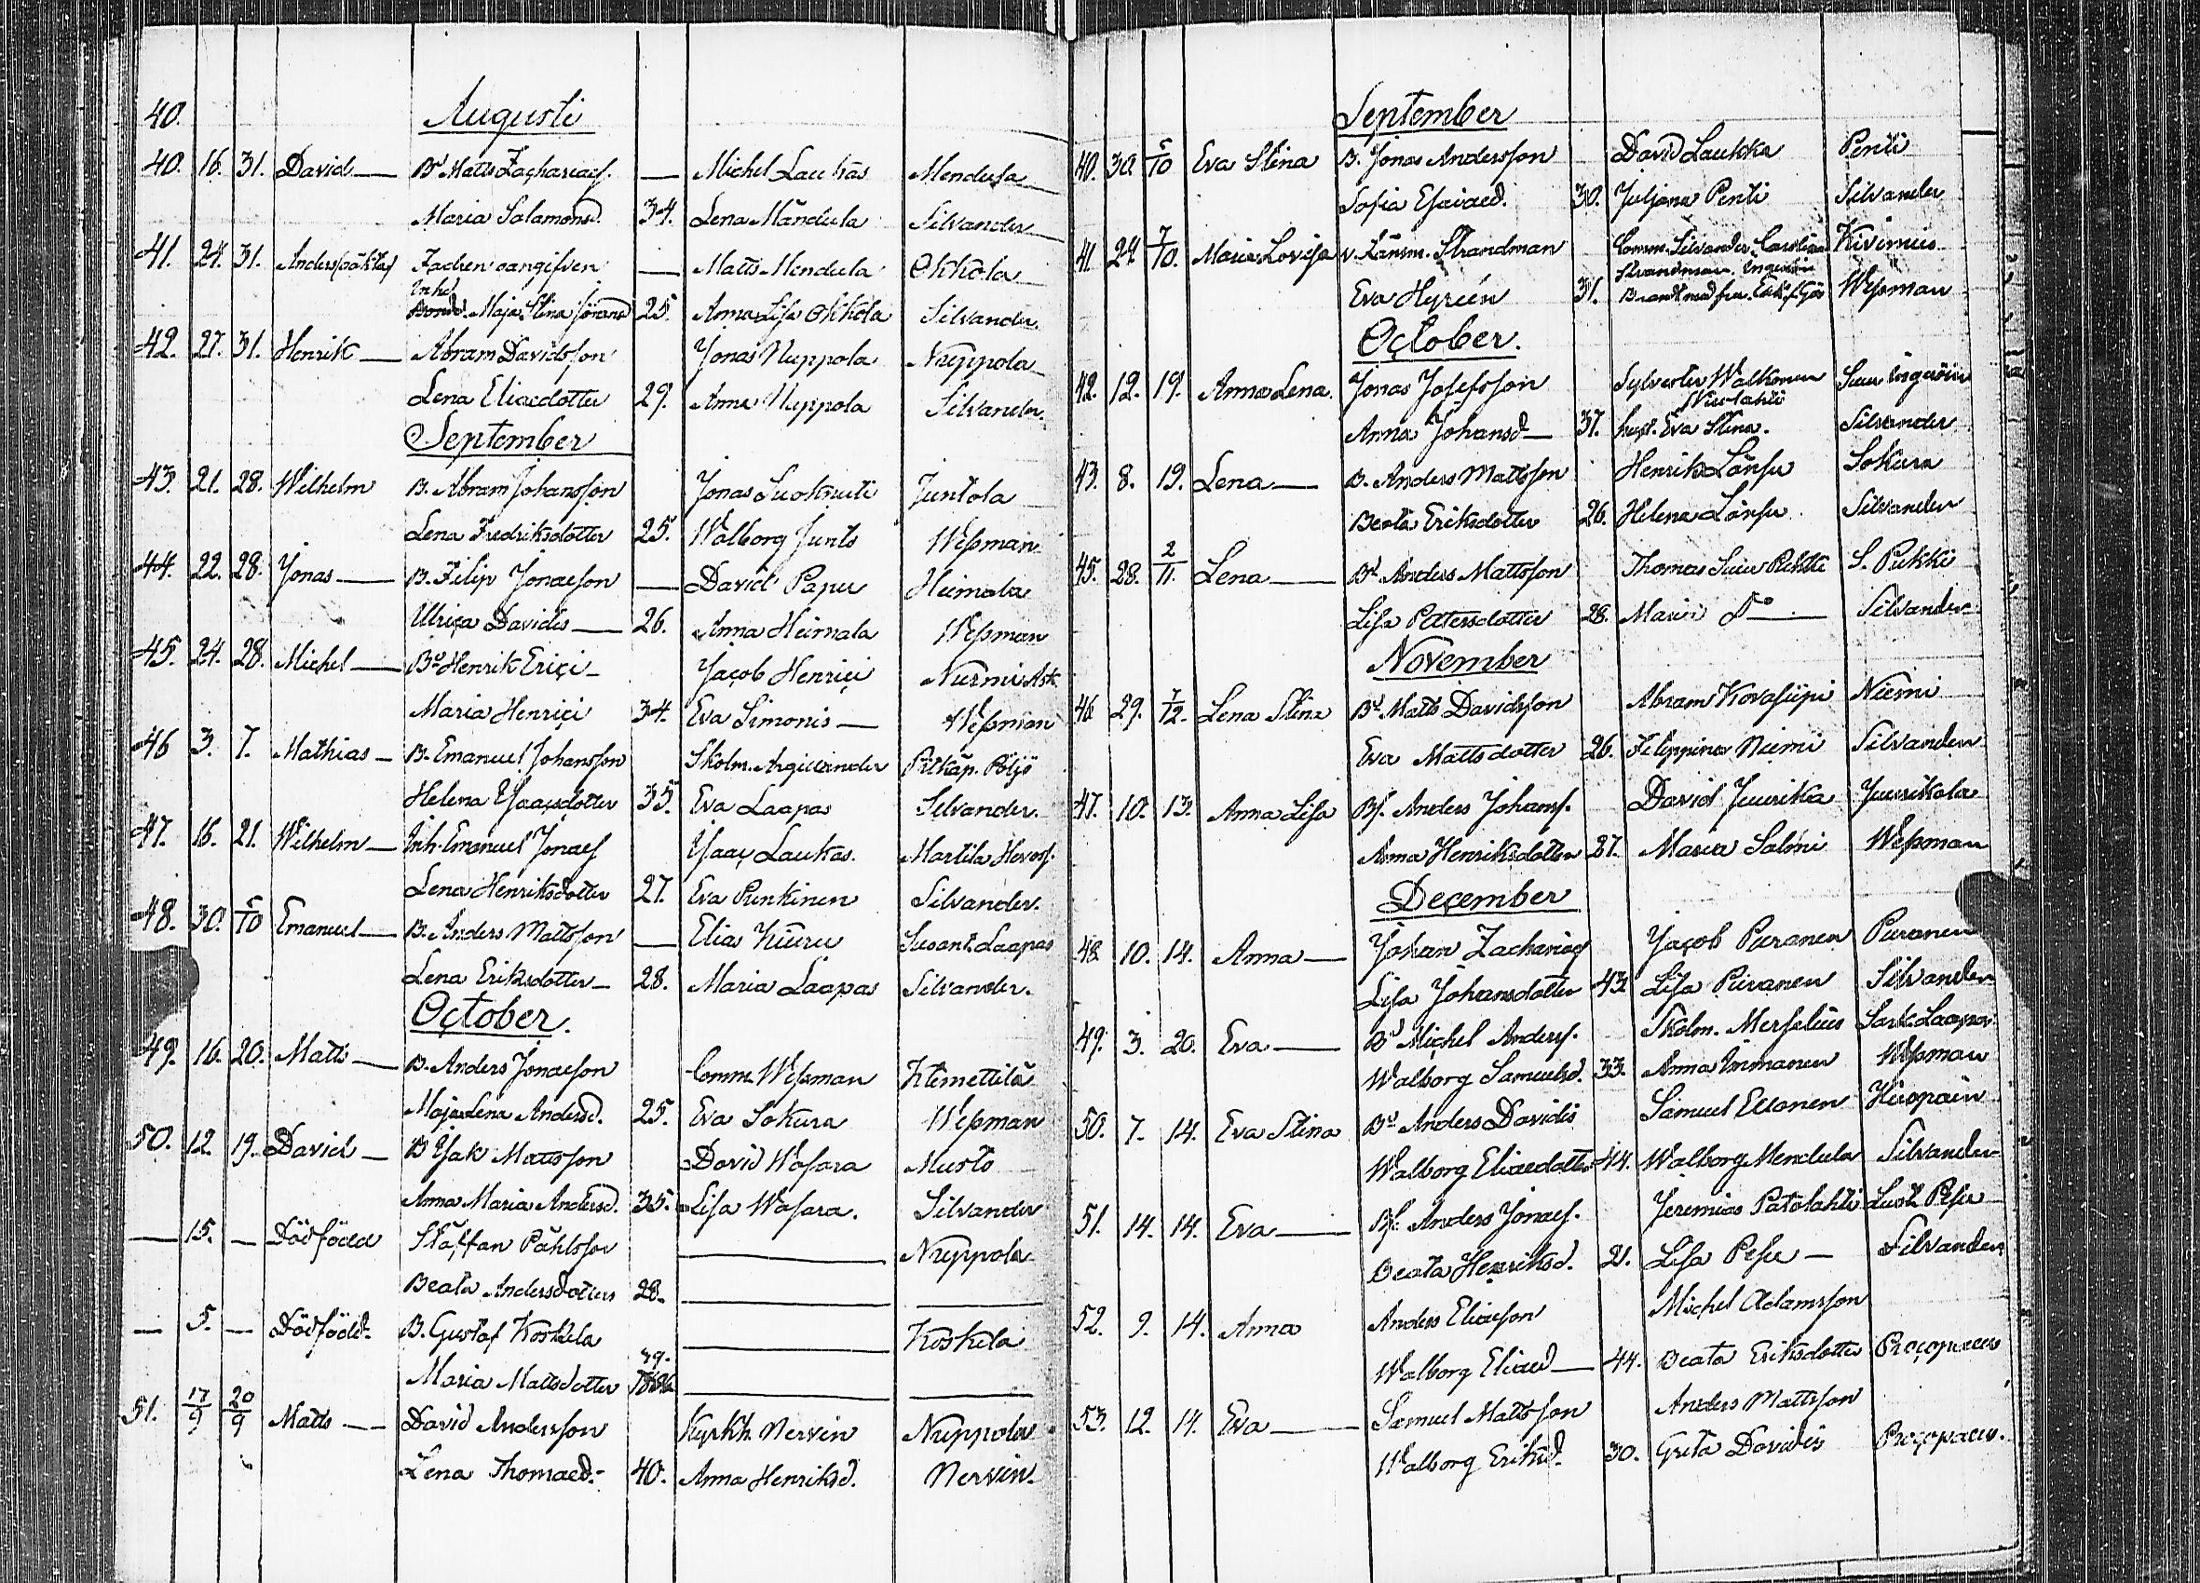 40. Augusti
40. 16. 31. David — Bd Matts Zachariaes. — Michel Laukas Mendula
Maria Salamonsd. 34. Lena Mändula Silvander
41. 24. 31. Anders oäkta Fadren oangifven — Matts Mendula Okkola
Inh.
Maja Stina Göransd 25. Anna Lisa Okkola Silvander
42. 27. 31. Henrik — Abram Davidsson Jonas Nuppola Nuppola
Lena Eliaedotter 29. Anna Nuppola Silvander.
September
43. 21. 28. Wilhelm B. Abram Johansson Jonas Suoknuti Juntola
Lena Fredriksdotter 25. Walborg Junts Wessman
44. 22. 28. Jonas — B. Filip Jonaeson — David Papu Heimala
Ulrica Davidis — 26. Anna Heimala Wessman
45. 24. 28. Michel — Bd Henrik Erici — Jacob Henrici Nurmi Ask.
Maria Henrici 34. Eva Simonis — Wessman
46 3. 7. Mathias — B. Emanuel Johansson Skolm. Argillander Pitkäp. Böljö
Helena Ysaacsdotter 35. Eva Laapas Silvander.
47. 16. 21. Wilhelm — Inh. Emanuel Jonaes Ysaac Laukas. Martila Hovof.
Lena Henriksdotter 27. Eva Punkinen Silvander.
48. 30. 5/10 Emanuel — B. Anders Mattsson — Elias Kiuru Suoant. Laapas
Lena Eriksdotter — 28. Maria Laapas Silvander.
October.
49. 16. 20. Matts — B. Anders Jonaeson Comm. Wessman Klemettilä
Maja Lena Andersd. 25. Eva Sokura Wessman
50. 12. 19. David — B Ysak Mattsson David Wasara Musto
Anna Maria Andersd. 35. Lisa Wasara. Silvander
— 15. — Dödfödd Staffan Påhlsson — Nuppola
Beata Andersdotter 28. — —
— 5. — Dödfödd. B. Gustaf Koskela — Koskela
Maria Mattsdotter 39. — —
51. 17/9 20/9 Matts — David Andersson Kyrkh. Nervin Nuppola
Lena Thomaed. 40. Anna Henriksd. Nervin.
September
40. 30. 5/10 Eva Stina B. Jonas Andersson David Laukka Penti
Sofia Esaiaed. 30. Juljana Penti Silvander
41. 24 7/10. Maria Lovisa v. Länsm. Strandman Comm. Silvander. Carolina Kivimus
Strandman. Ingeniör
Eva Hyreén 31. Brandt med fru. Wessman
October.
42. 12. 19. Anna Lena. Jonas Josefsson Sylvester Walkonen Suur Ingeröin
Anna Johansd — 37. hust. Eva Stina. Silvander
43. 8. 19. Lena — B. Anders Mattsson Henrik Länsu Sokura
Beata Eriksdotter 26. Helena Länsu Silvander
45. 28. 2/11. Lena — Bd Anders Mattsson Thomas Suur Pukki S. Pukki
Lisa Pettersdotter 28. Maria Do — Silvander
November
46 29. 7/12. Lena Stina Bd. Matts Davidsson Abram Kovasiipi Niemi
Eva Mattsdotter 26. Filippina Niemi Silvander
47. 10. 13. Anna Lisa Bs. Anders Johans. David Juurika Juurikala
Anna Henriksdotter 27. Maria Saloni Wessman
December
48 10. 14. Anna — Johan Zachariaes Jacob Puranen Puranen
Lisa Johansdotter 43. Lisa Puranen Silvander
49. 3. 20. Eva — Bd Michel Anders. Skolm. Merselius Sark. Laapas
Walborg Samuelsd. 33. Anna Immonen Wessman
50. 7. 14. Eva Stina Bd Anders Davidis Samuel Ellonen Huopain
Walborg Eliaedotter 44. Walborg Mendula Silvander
51. 14. 14. Eva — Bs. Anders Jonaes. Jeremias Patolahti Lust. Pesu
Beata Henriksd. 21. Lisa Pesu — Silvander
52. 9. 14. Anna Anders Eliaeson Michel Adamsson
Walborg Eliaed — 44. Beata Eriksdotter Procopaeus
53. 12. 14. Eva — Samuel Mattsson Anders Mattsson
Walborg Eriksd. 30. Greta Davidis Procopaeus.